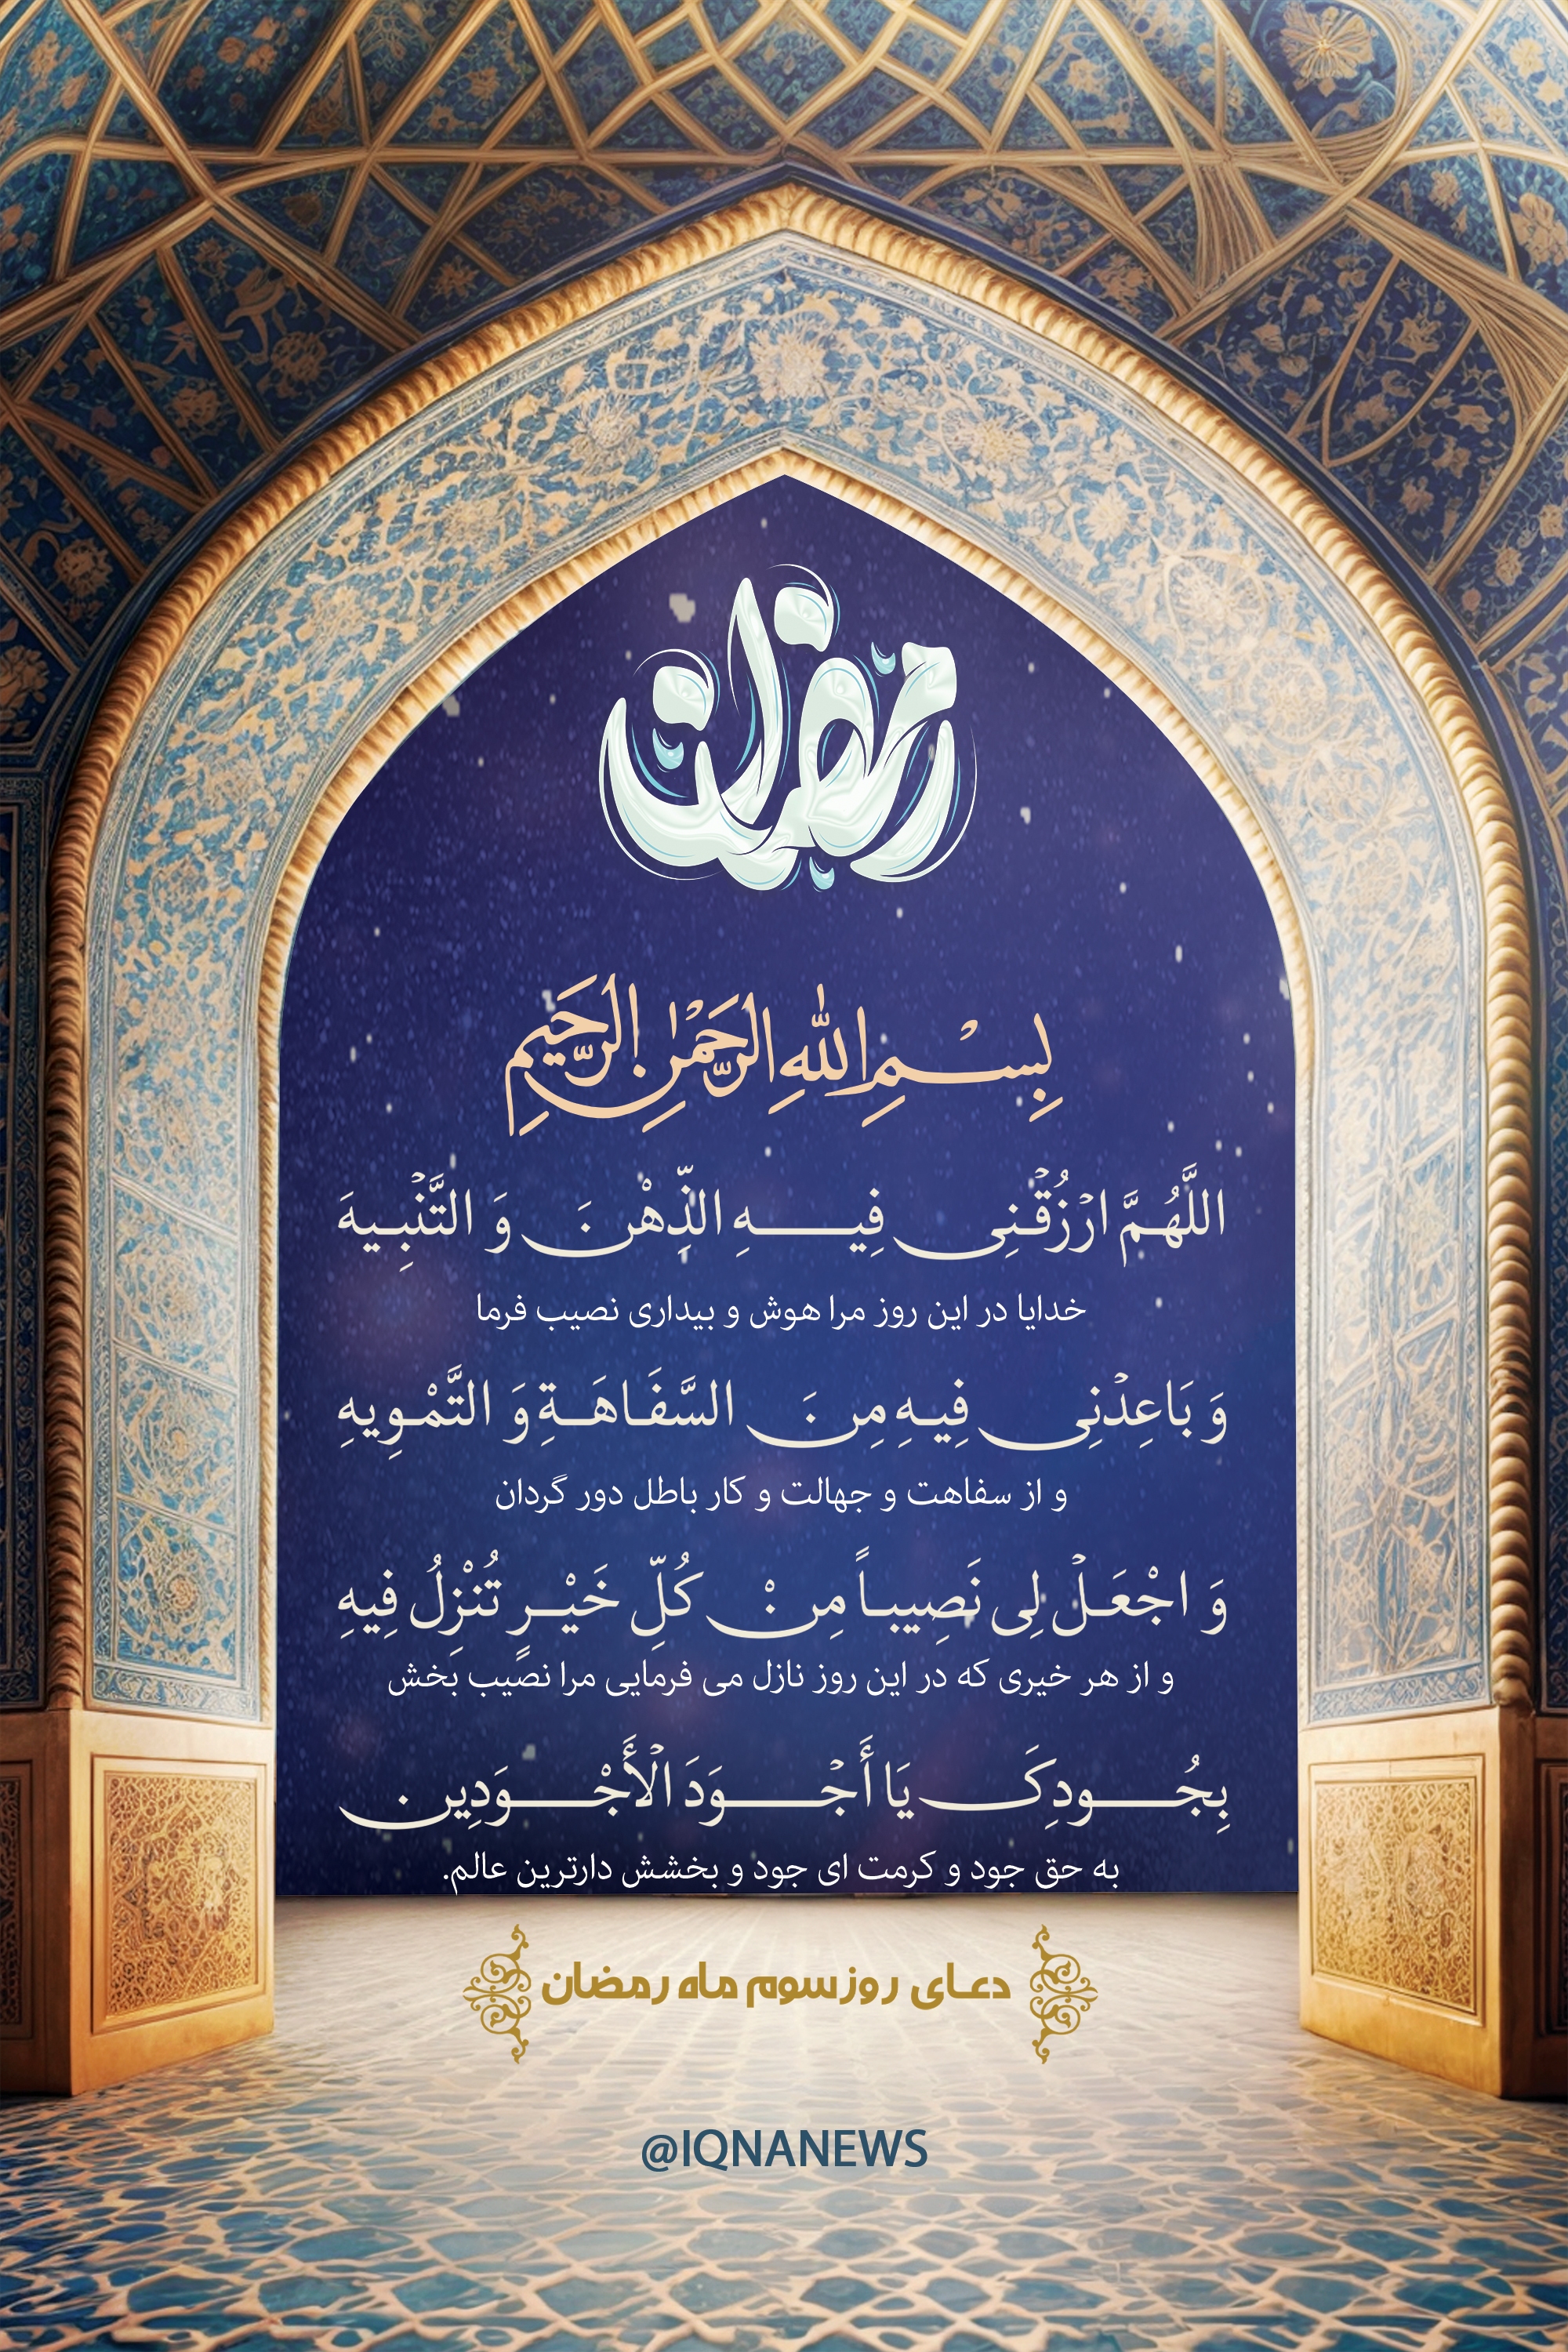 رمضان
بِسْمِ اللهِ الرَّحْمٰنِ الرَّحِیمِ
اللَّهُمَّ ارْزُقْنِی فِیهِ الذِّهْنَ وَ التَّنْبِیهَ
خدایا در این روز مرا هوش و بیداری نصیب فرما
وَ بَاعِدْنِی فِیهِ مِنَ السَّفَاهَةِ وَ التَّمْوِیهِ
و از سفاهت و جهالت و کار باطل دور گردان
وَ اجْعَلْ لِی نَصِیباً مِنْ کُلِّ خَیْرٍ تُنْزِلُ فِیهِ
و از هر خیری که در این روز نازل می فرمایی مرا نصیب بخش
بِجُودِکَ یَا أَجْوَدَ الْأَجْوَدِین
به حق جود و کرمت ای جود و بخشش دارترین عالم.
دعای روز سوم ماه رمضان
@IQNANEWS